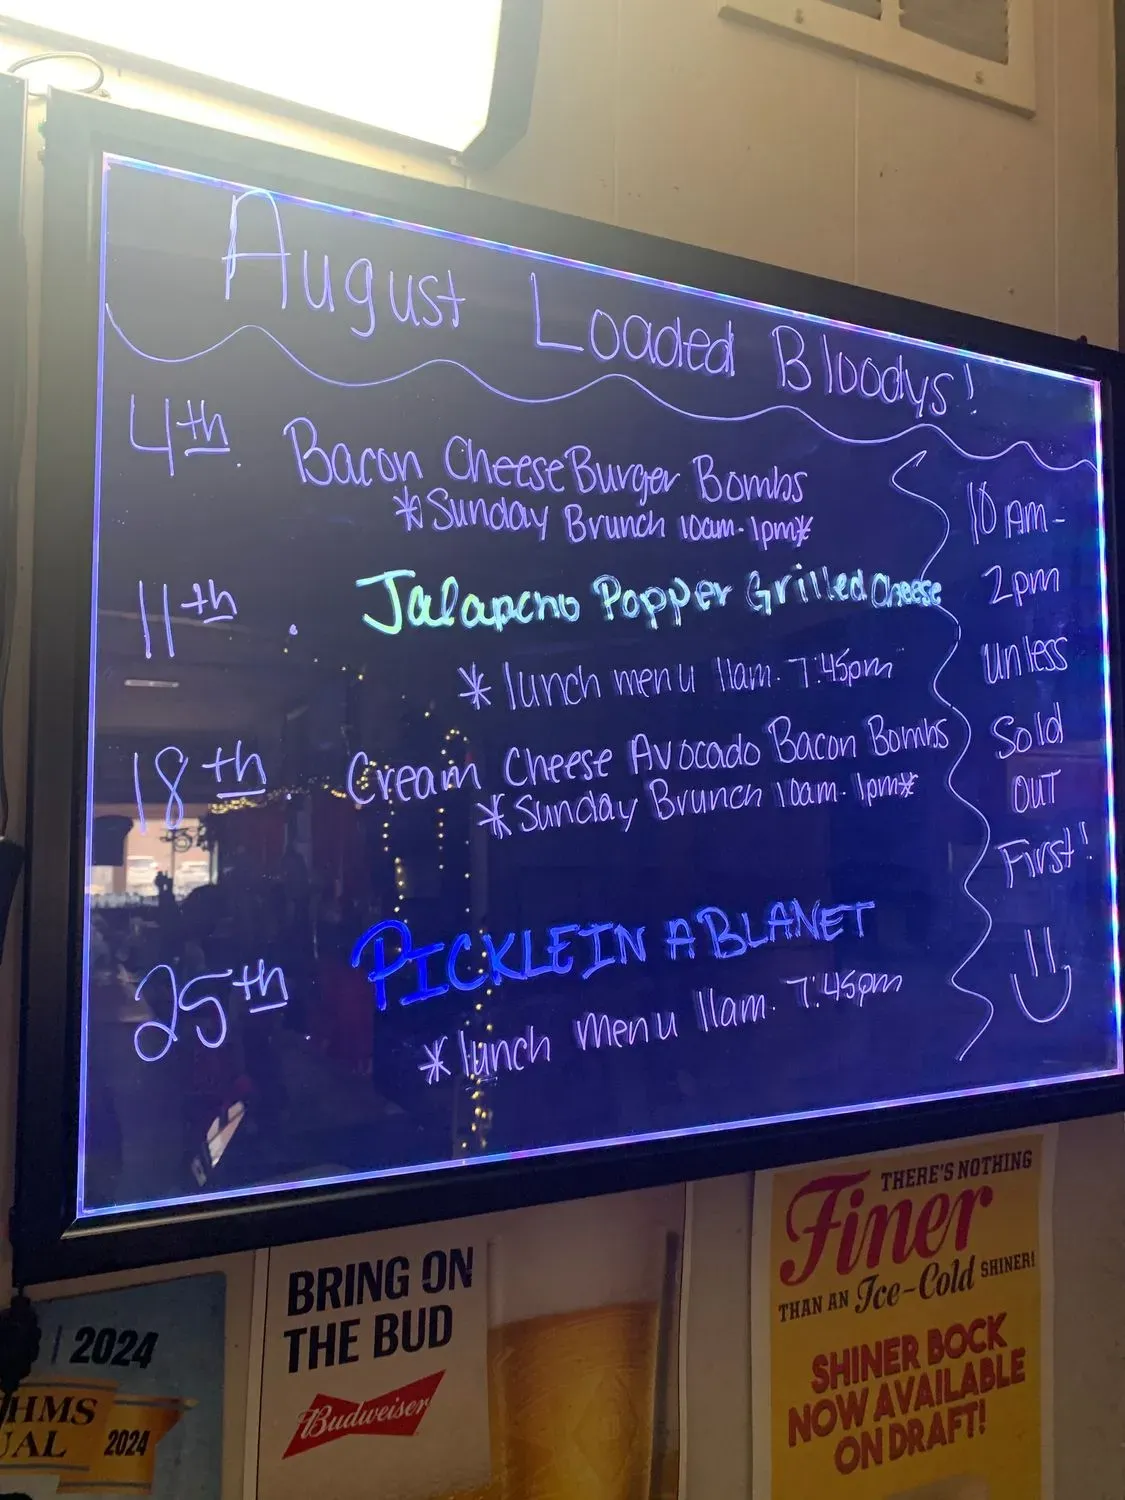 August Loaded Bloodys!
4th. Bacon CheeseBurger Bombs
*Sunday Brunch 10am-1pm*
11th. Jalapeno Popper Grilled Cheese
*lunch menu 11am-7:45pm
18th. Cream Cheese Avocado Bacon Bombs
*Sunday Brunch 10am-1pm*
25th PICKLE IN A BLANET
*lunch menu 11am-7:45pm
10 Am-
2pm
unless
Sold
OUT
First!
2024
HMS
UAL
2024
BRING ON
THE BUD
Budweiser
THERE'S NOTHING
Finer
THAN AN Ice-Cold SHINER!
SHINER BOCK
NOW AVAILABLE
ON DRAFT!